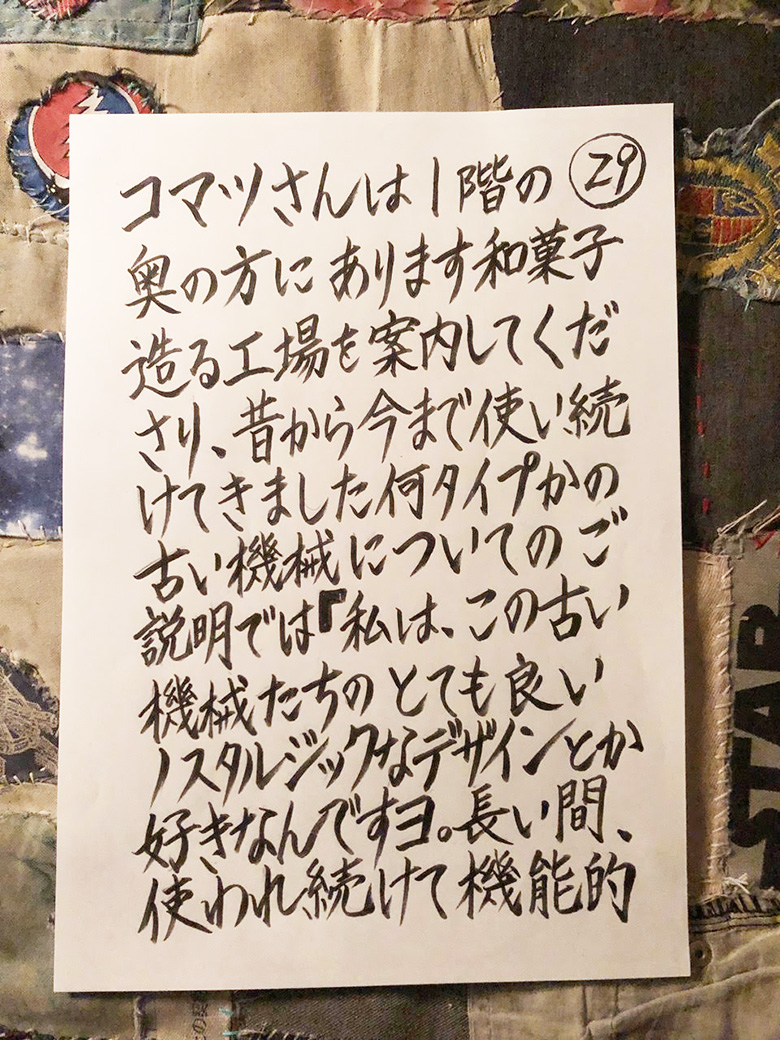 コマツさんは1階の ㉙
奥の方にあります和菓子
造る工場を案内してくだ
さり、昔から今まで使い続
けてきました何タイプかの
古い機械についてのご
説明では『私は、この古い
機械たちのとても良い
ノスタルジックなデザインとか
好きなんですヨ。長い間、
使われ続けて機能的
STAR